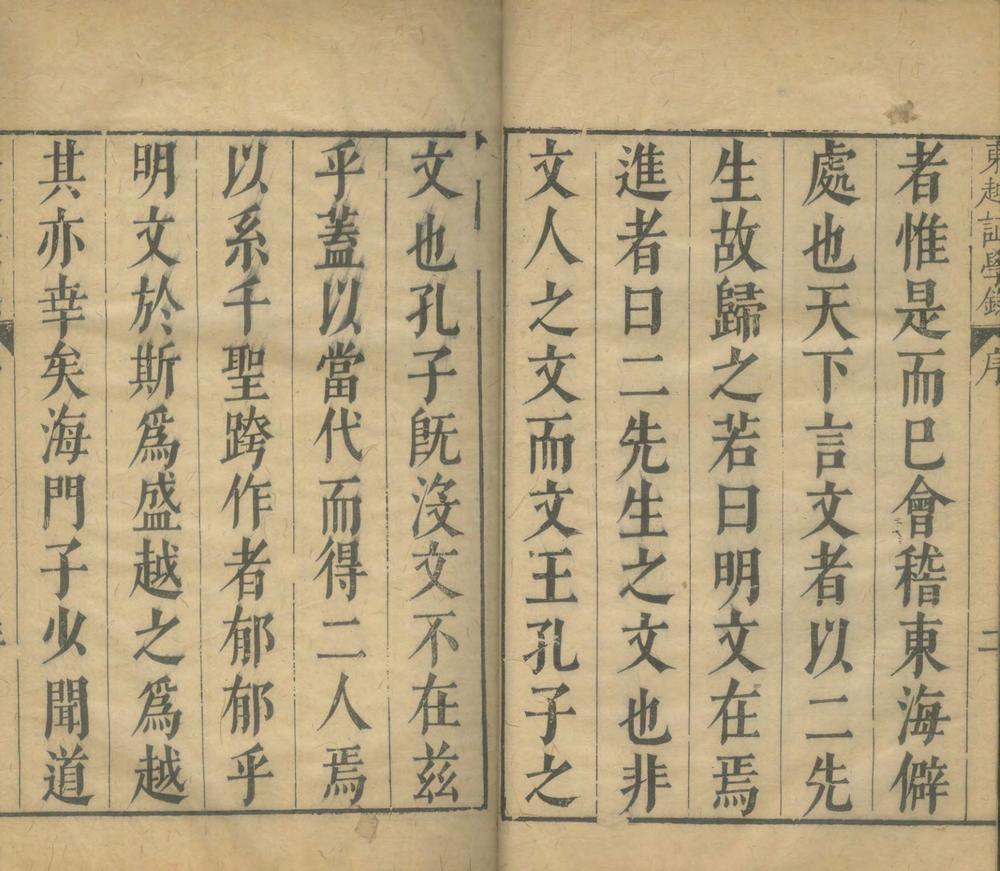 東越證學錄
序
二
者惟是而已會稽東海僻
處也天下言文者以二先
生故歸之若曰明文在焉
進者曰二先生之文也非
文人之文而文王孔子之
文也孔子既沒文不在茲
乎蓋以當代而得二人焉
以系千聖跨作者郁郁乎
明文於斯爲盛越之爲越
其亦幸矣海門子少聞道